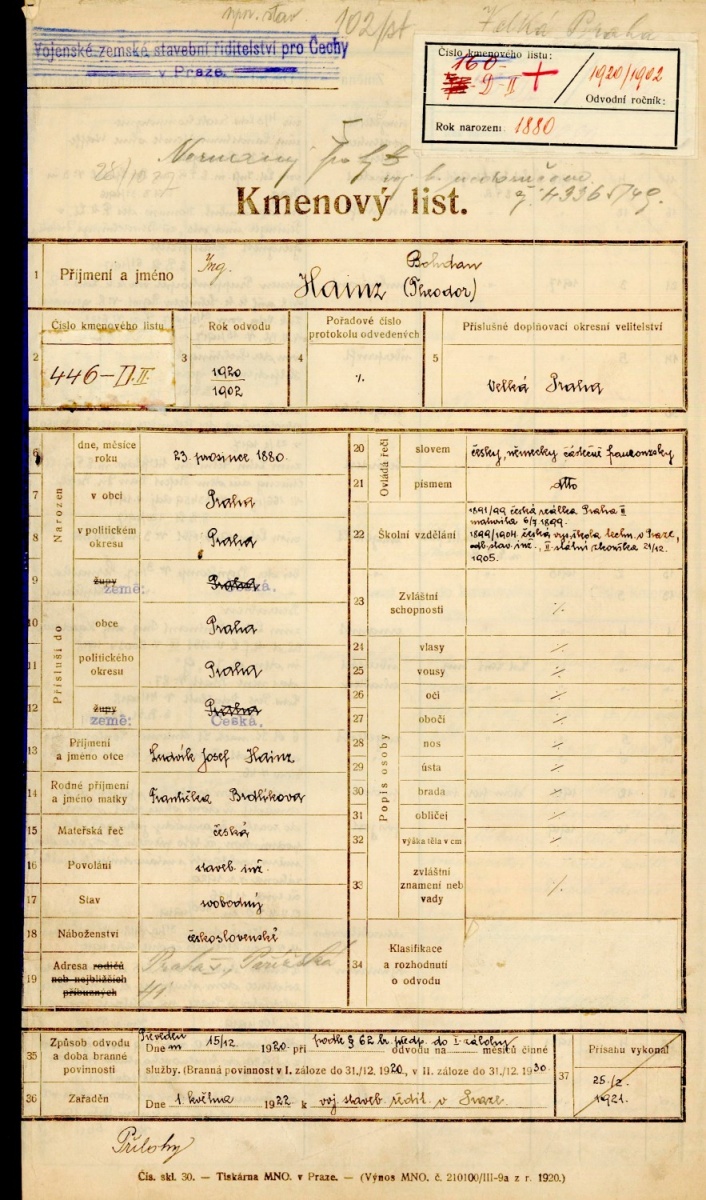 102/pt Velká Praha
Vojenské zemské stavební řiditelství pro Čechy
v Praze.
Číslo kmenového listu:
160-
D-II
1920/1902
Odvodní ročník:
Rok narození: 1880
Kmenový list.
1 Příjmení a jméno Ing. Hainz Bohdan
(Theodor)
Číslo kmenového listu
2 446-D.II.
3 Rok odvodu
1920
1902
4 Pořadové číslo
protokolu odvedených
%
5 Příslušné doplňovací okresní velitelství
Velká Praha
Narozen
6 dne, měsíce
roku
23. prosince 1880.
7 v obci Praha
8 v politickém
okresu
Praha
9 župy Praha
země: Česká.
Přísluší do
10 obce Praha
11 politického
okresu
Praha
12 župy Praha
země: Česká.
13 Příjmení
a jméno otce
Ludvík Josef Hainz
14 Rodné příjmení
a jméno matky
Františka Brdlíkova
15 Mateřská řeč česká
16 Povolání staveb. inž.
17 Stav svobodný
18 Náboženství československé
19 Adresa rodičů
neb nejbližších
příbuzných
Praha Pařížská
Ovládá řeči
20 slovem česky, německy částečně francouzsky
21 písmem dtto
22 Školní vzdělání
1891/99 česká reálka Praha II
maturita 6/7 1899.
1899/1904 česká vys. škola techn. v Praze,
odb. stav. inž., II. státní zkouška 21/12.
1905.
23 Zvláštní
schopnosti
%
Popis osoby
24 vlasy %
25 vousy %
26 oči %
27 obočí %
28 nos %
29 ústa %
30 brada %
31 obličej %
32 výška těla v cm %
33 zvláštní
znamení neb
vady
%
34 Klasifikace
a rozhodnutí
o odvodu
35 Způsob odvodu
a doba branné
povinnosti
Převeden podle § 62 br. předp. do I. zálohy
Dne 15/12 1920 při odvodu na měsíců činné
služby. (Branná povinnost v I. záloze do 31./12. 1920, v II. záloze do 31./12. 1930
36 Zařaděn
Dne 1. května 1922 k voj. staveb. ředit. v Praze.
37 Přísahu vykonal
25./2.
1921.
Přílohy
Čís. skl. 30. — Tiskárna MNO. v Praze. — (Výnos MNO. č. 210100/III-9a z r. 1920.)